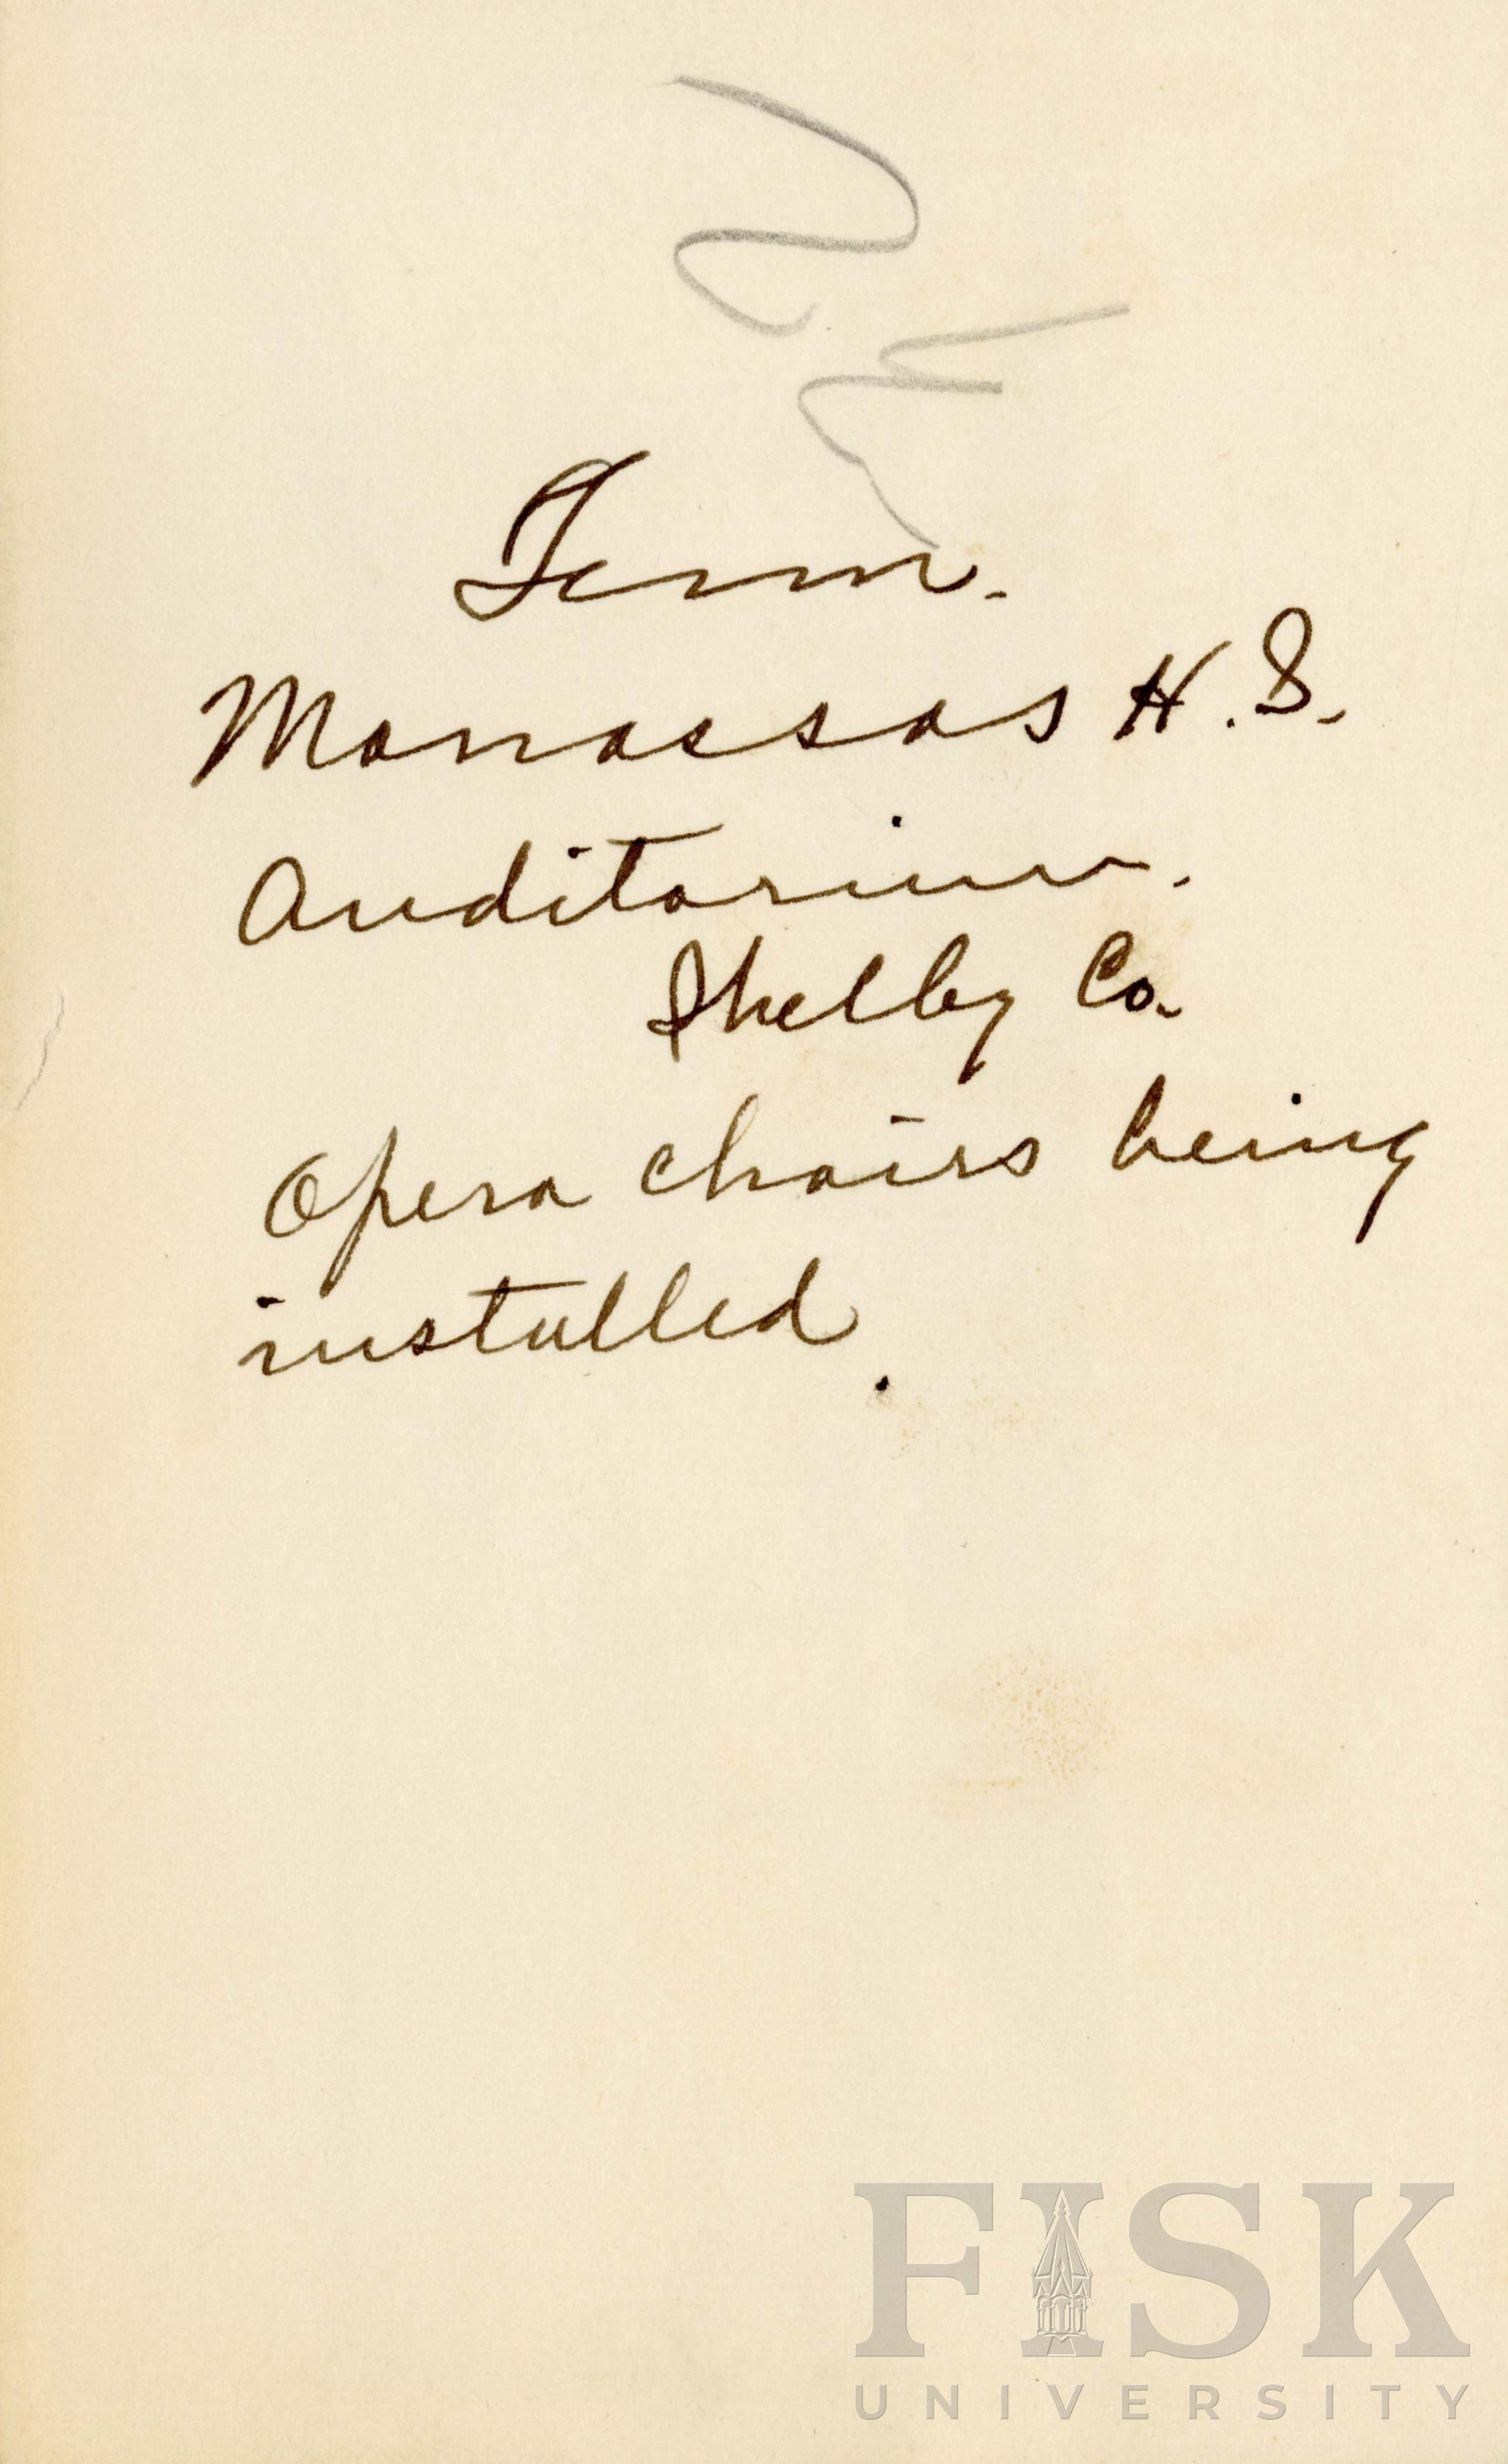 Tenn.
Manassas H.S.
Auditorium.
Shelby Co.
Opera chairs being
installed.
FISK
UNIVERSITY